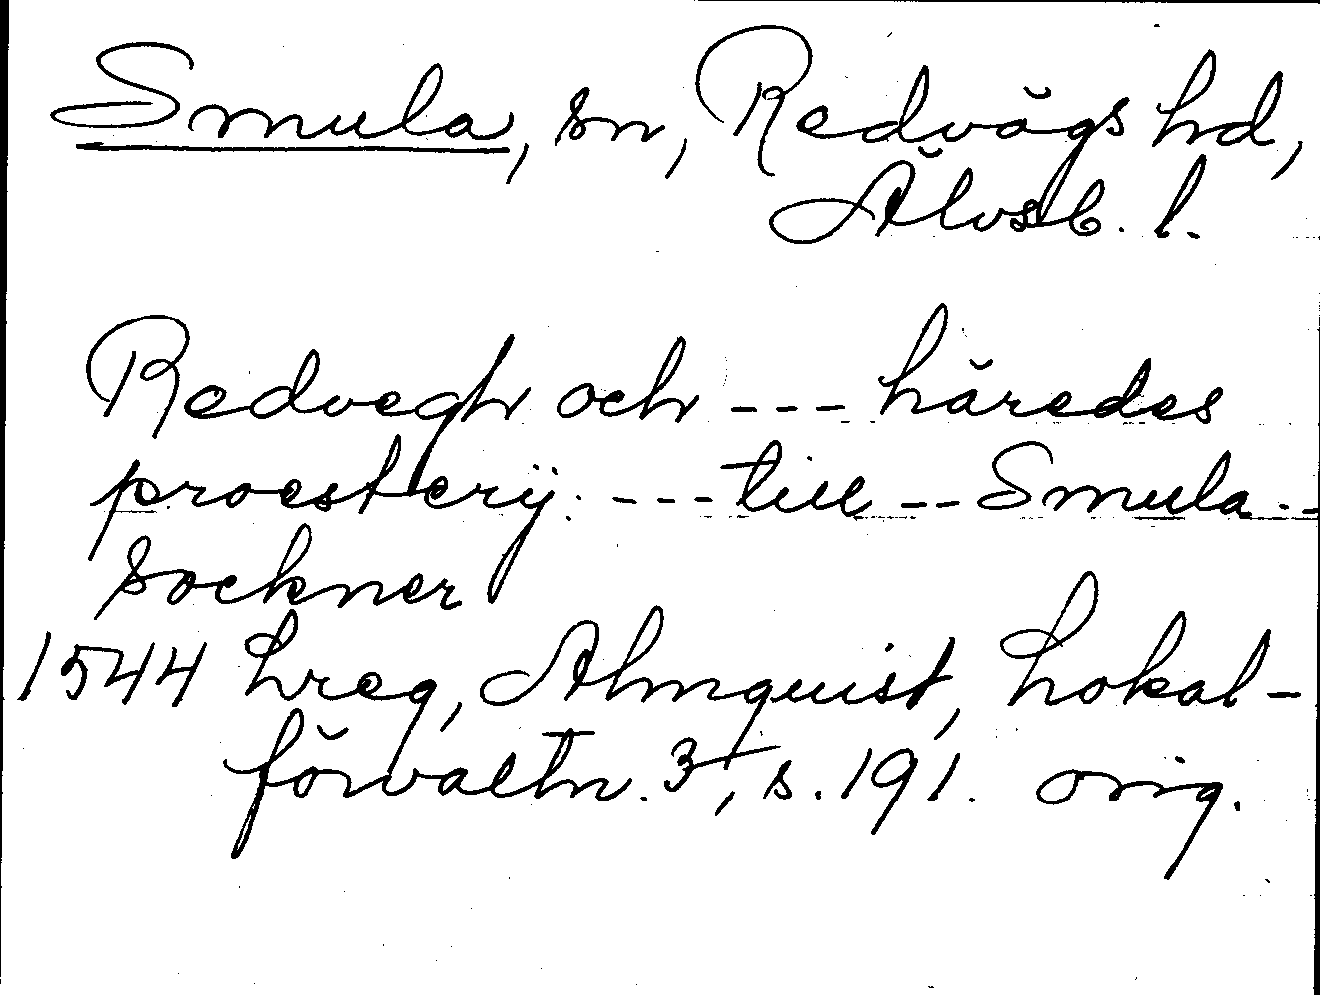 Smula, sn, Redvägs hd,
Älvsb. l.
Redvegh och --- häredes
proesterÿ. --- till -- Smula --
sockner
1544 Lreg, Almquist, Lokal-
förvaltn. 3, s. 191. orig.